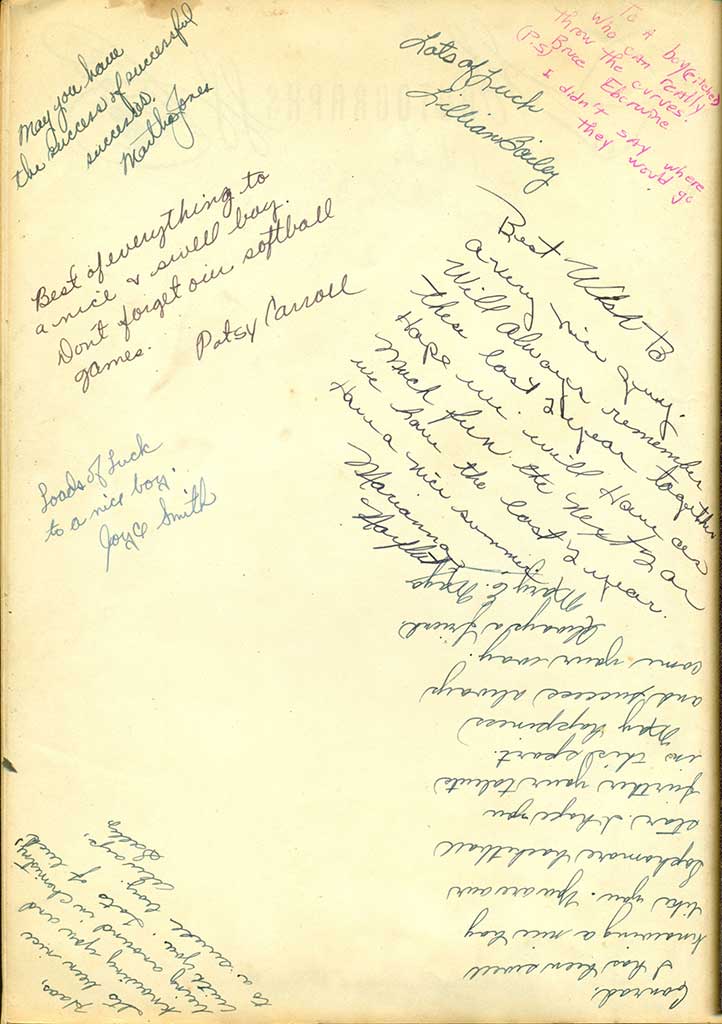 May you have
the success of successful
successes.
Martha Jones
Lots of Luck
Lillian Bailey
To A boy (pitcher)
who can really
throw the curves!
Bruce Eberwine
(P.S) I didn't say where
they would go
Best of everything to
a nice & swell boy.
Don't forget our softball
games.
Patsy Carroll
Best Wish to
a very nice guy.
Will always remember
these last 2 year together
Hope we will have as
much fun the next 2 as
we have the last 2 year.
Have a nice summer,
Marianna
Loads of Luck
to a nice boy.
Joyce Smith
Conrad,
I has been swell
knowing a nice boy
like you. You are our
Sophomore basketball
star. I hope you
further your talents
in this sport.
May happiness
and success always
come your way.
Always a friend.
Mary C. Mayo
Haas,
It's been nice
knowing you and
being around in chemistry
with you. Lots of luck
to a swell boy.
Always,
Sally